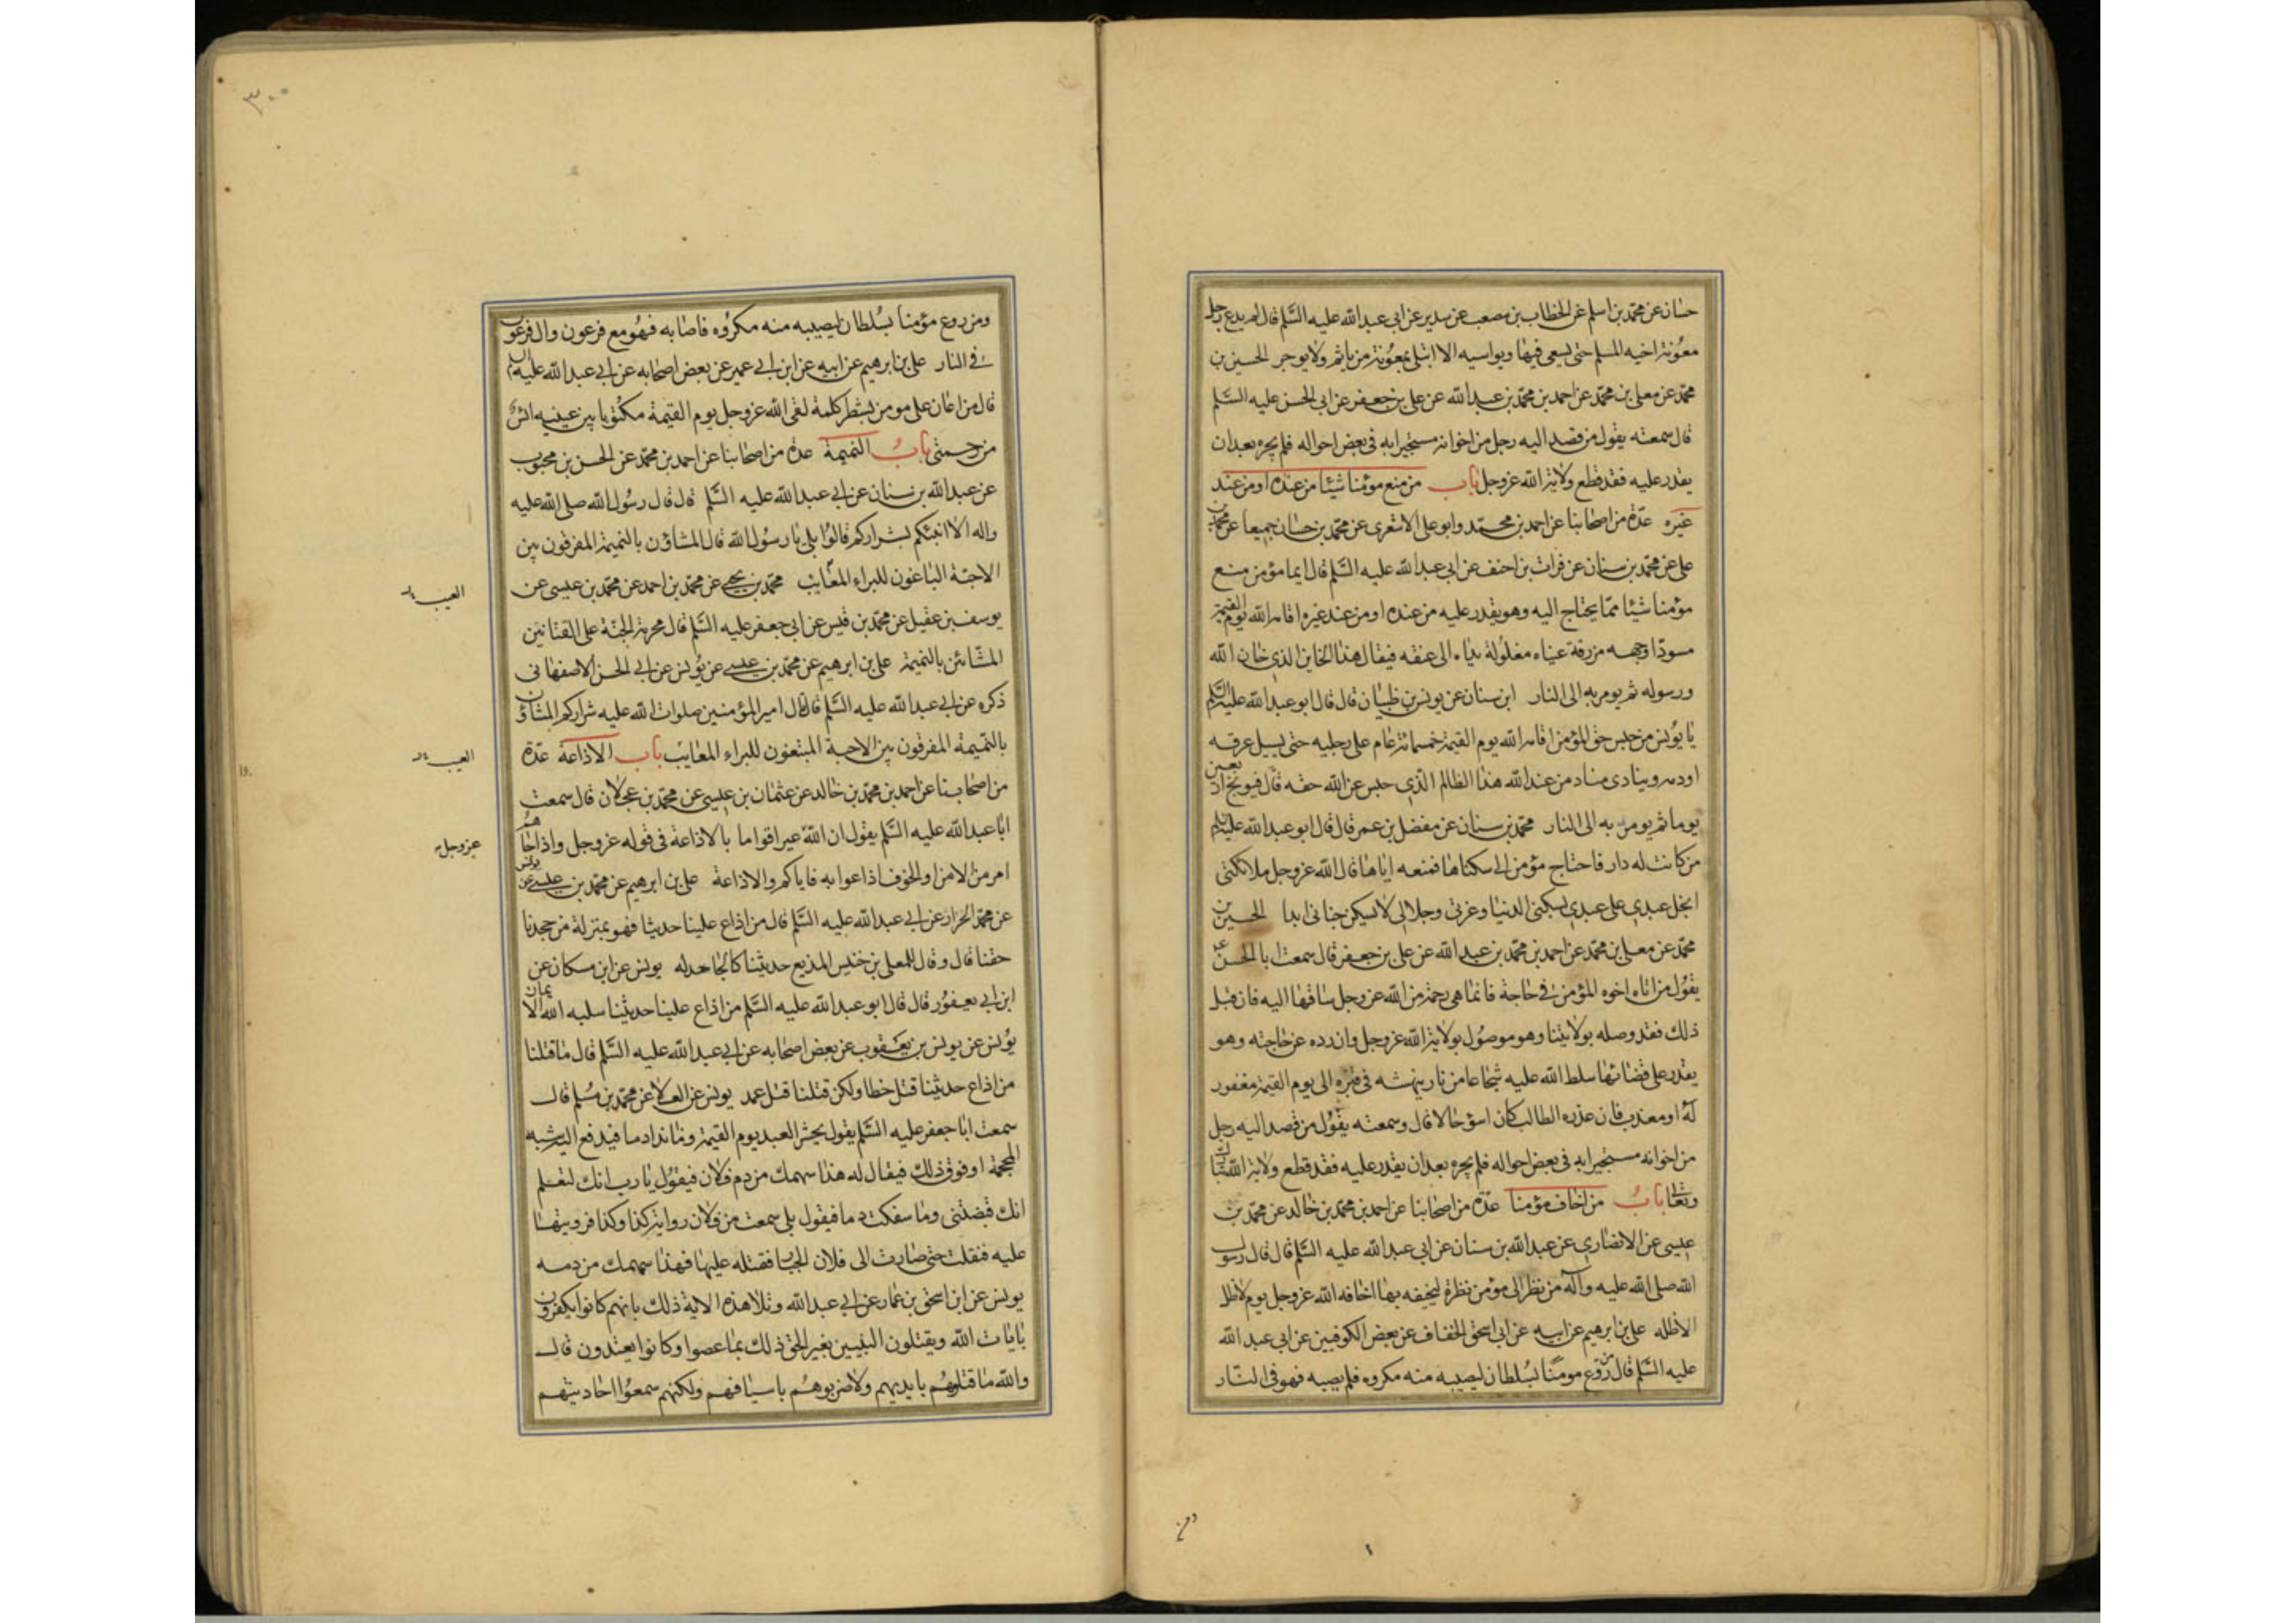 حسان عن محمد بن اسلم عن الخطاب بن مصعب عن سدير عن ابى عبد الله عليه السلم قال لم يدع رجل
معونة اخيه المسلم حتى يسعى فيها ويواسيه الا ابتلى بمعونة من ياثم ولا يوجر الحسين بن
محمد عن معلى بن محمد عن احمد بن محمد بن عبد الله عن على بن جعفر عن ابى الحسن عليه السلم
قال سمعته يقول من قصد اليه رجل من اخوانه مستجيرا به فى بعض احواله فلم يجره بعد ان
يقدر عليه فقد قطع ولاية الله عز وجل باب من منع مؤمنا شيئا من عنده او من عند
غيره عدة من اصحابنا عن احمد بن محمد وابو على الاشعرى عن محمد بن حسان جميعا عن محمد بن
على عن محمد بن سنان عن فرات بن احنف عن ابى عبد الله عليه السلم قال ايما مؤمن منع
مؤمنا شيئا مما يحتاج اليه وهو يقدر عليه من عنده او من عند غيره اقامه الله يوم القيمة
مسودا وجهه مزرقة عيناه مغلولة يداه الى عنقه فيقال هذا الخاين الذى خان الله
ورسوله ثم يومر به الى النار ابن سنان عن يونس بن ظبيان قال قال ابو عبد الله عليه السلم
يا يونس من حبس حق المؤمن اقامه الله يوم القيمة خمسمائة عام على رجليه حتى يسيل عرقه
او دمه وينادى مناد من عند الله هذا الظالم الذى حبس عن الله حقه قال فيوبخ اربعين
يوما ثم يومر به الى النار محمد بن سنان عن مفضل بن عمر قال قال ابو عبد الله عليه السلم
من كانت له دار فاحتاج مؤمن الى سكناها فمنعه اياها قال الله عز وجل ملائكتى
ابخل عبدى على عبدى بسكنى الدنيا وعزتى وجلالى لا يسكن جنانى ابدا الحسين بن
محمد عن معلى بن محمد عن احمد بن محمد بن عبد الله عن على بن جعفر قال سمعت ابا الحسن عه
يقول من اتاه اخوه المؤمن فى حاجة فانما هى رحمة من الله عز وجل ساقها اليه فان قبل
ذلك فقد وصله بولايتنا وهو موصول بولاية الله عز وجل وان رده عن حاجته وهو
يقدر على قضائها سلط الله عليه شجاعا من نار ينهشه فى قبره الى يوم القيمة مغفور
له او معذب فان عذره الطالب كان اسؤ حالا قال وسمعته يقول من قصد اليه رجل
من اخوانه مستجيرا به فى بعض احواله فلم يجره بعد ان يقدر عليه فقد قطع ولاية الله تبارك
وتعالى باب من اخاف مؤمنا عدة من اصحابنا عن احمد بن محمد بن خالد عن محمد بن
عيسى عن الانصارى عن عبد الله بن سنان عن ابى عبد الله عليه السلم قال قال رسول
الله صلى الله عليه وآله من نظر الى مؤمن نظرة ليخيفه بها اخافه الله عز وجل يوم لا ظل
الا ظله على بن ابرهيم عن ابيه عن ابى اسحق الخفاف عن بعض الكوفيين عن ابى عبد الله
عليه السلم قال من روع مومنا بسلطان ليصيبه منه مكروه فلم يصبه فهو فى النار
٣٠٠
ومن روع مؤمنا بسلطان ليصيبه منه مكروه فاصابه فهو مع فرعون وال فرعون
فى النار على بن ابرهيم عن ابيه عن ابن ابى عمير عن بعض اصحابه عن ابى عبد الله عليه السلم
قال من اعان على مومن بشطر كلمة لقى الله عز وجل يوم القيمة مكتوبا بين عينيه ائس
من رحمتى باب النميمة عدة من اصحابنا عن احمد بن محمد عن الحسن بن محبوب
عن عبد الله بن سنان عن ابى عبد الله عليه السلم قال قال رسول الله صلى الله عليه
واله الا انبئكم بشراركم قالوا بلى يا رسول الله قال المشاؤن بالنميمة المفرقون بين
الاحبة الباغون للبراء المعايب محمد بن يحيى عن محمد بن احمد عن محمد بن عيسى عن
العيب
يوسف بن عقيل عن محمد بن قيس عن ابى جعفر عليه السلم قال محرمة الجنة على القتاتين
المشائين بالنميمة على بن ابرهيم عن محمد بن عيسى عن يونس عن ابى الحسن الاصفهانى
ذكره عن ابى عبد الله عليه السلم قال قال امير المؤمنين صلوات الله عليه شراركم المشاؤن
بالنميمة المفرقون بين الاحبة المبتغون للبراء المعايب باب الاذاعة عدة
العيب
من اصحابنا عن احمد بن محمد بن خالد عن عثمان بن عيسى عن محمد بن عجلان قال سمعت
ابا عبد الله عليه السلم يقول ان الله عير اقواما بالاذاعة فى قوله عز وجل واذا جاهم
عز وجل
امر من الامن او الخوف اذاعوا به فاياكم والاذاعة على بن ابرهيم عن محمد بن عيسى عن يونس
عن محمد الخزاز عن ابى عبد الله عليه السلم قال من اذاع علينا حديثا فهو بمنزلة من جحدنا
حقنا قال وقال للمعلى بن خنيس المذيع حديثنا كالجاحد له يونس عن ابن مسكان عن
ابن ابى يعفور قال قال ابو عبد الله عليه السلم من اذاع علينا حديثنا سلبه الله الايمان
يونس عن يونس بن يعقوب عن بعض اصحابه عن ابى عبد الله عليه السلم قال ما قتلنا
من اذاع حديثنا قتل خطا ولكن قتلنا قتل عمد يونس عن العلا عن محمد بن مسلم قال
سمعت ابا جعفر عليه السلم يقول يحشر العبد يوم القيمة وما ندا دما فيدفع اليه شبه
المحجمة او فوق ذلك فيقال له هذا سهمك من دم فلان فيقول يا رب انك لتعلم
انك قبضتنى وما سفكت دما فيقول بلى سمعت من فلان رواية كذا وكذا فرويتها
عليه فنقلت حتى صارت الى فلان الجبار فقتله عليها فهذا سهمك من دمه
يونس عن ابن اسحق بن عمار عن ابى عبد الله وتلا هذه الاية ذلك بانهم كانوا يكفرون
بايات الله ويقتلون النبيين بغير الحق ذلك بما عصوا وكانوا يعتدون قال
والله ما قتلوهم بايديهم ولا ضربوهم باسيافهم ولكنهم سمعوا احاديثهم